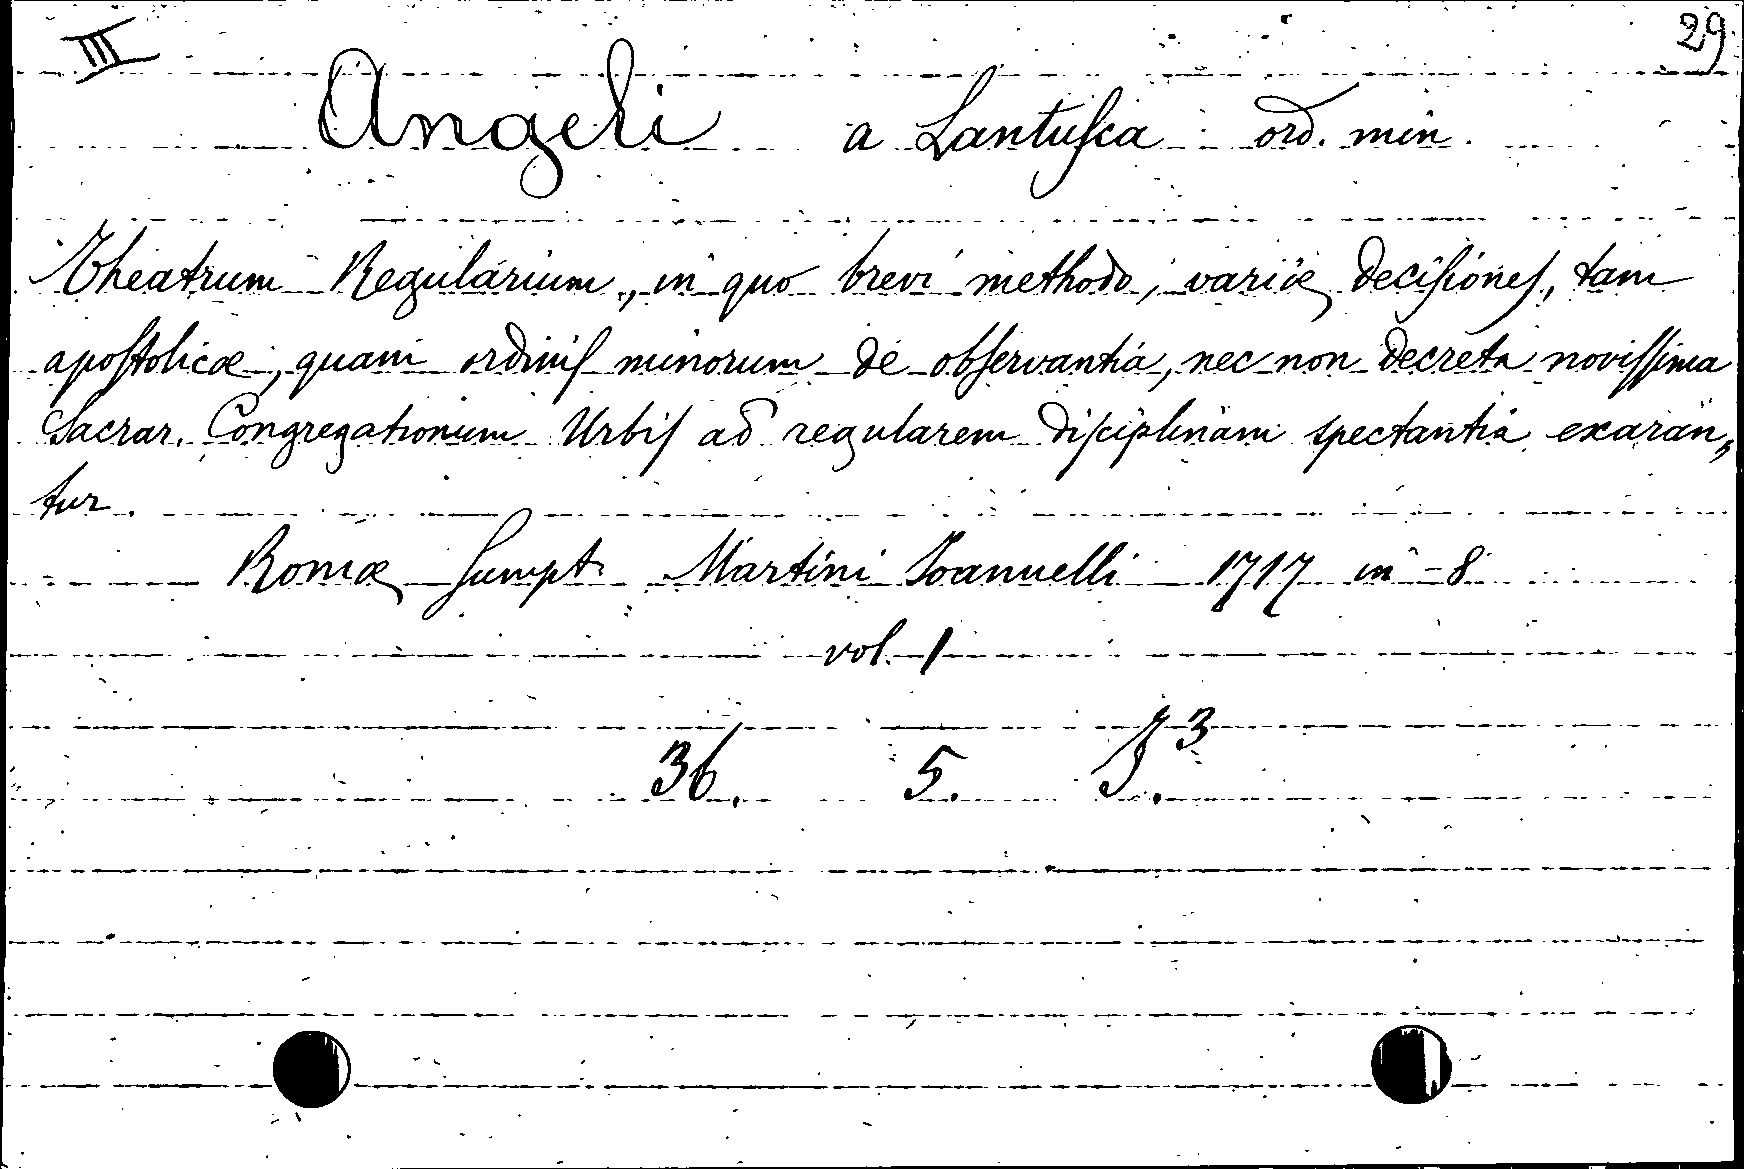 III 29
Angeli a Lantusca ord. min.
Theatrum Regularium, in quo brevi methodo, variæ decisiones, tam
apostolicæ, quam ordinis minorum de observantia, nec non decreta novissima
Sacrar. Congregationum Urbis ad regularem disciplinam spectantia exaran„
tur.
Romæ sumpt. Martini Ioannelli 1717 in-8
vol. 1
36. 5. J.3